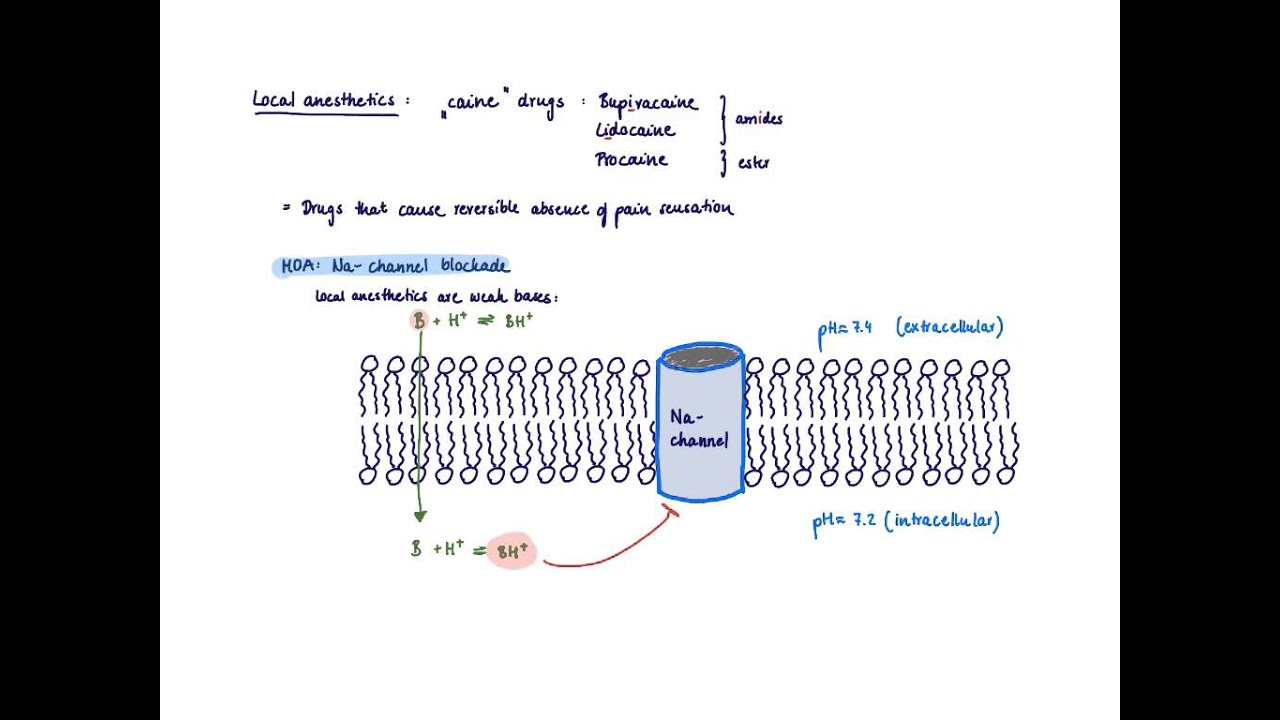 Local anesthetics : „caine" drugs : Bupivacaine
Lidocaine
} amides
Procaine } ester
= Drugs that cause reversible absence of pain sensation
MOA: Na-channel blockade
Local anesthetics are weak bases:
B + H⁺ ⇌ BH⁺
pH≈ 7.4 (extracellular)
Na-
channel
pH≈ 7.2 (intracellular)
B + H⁺ = BH⁺